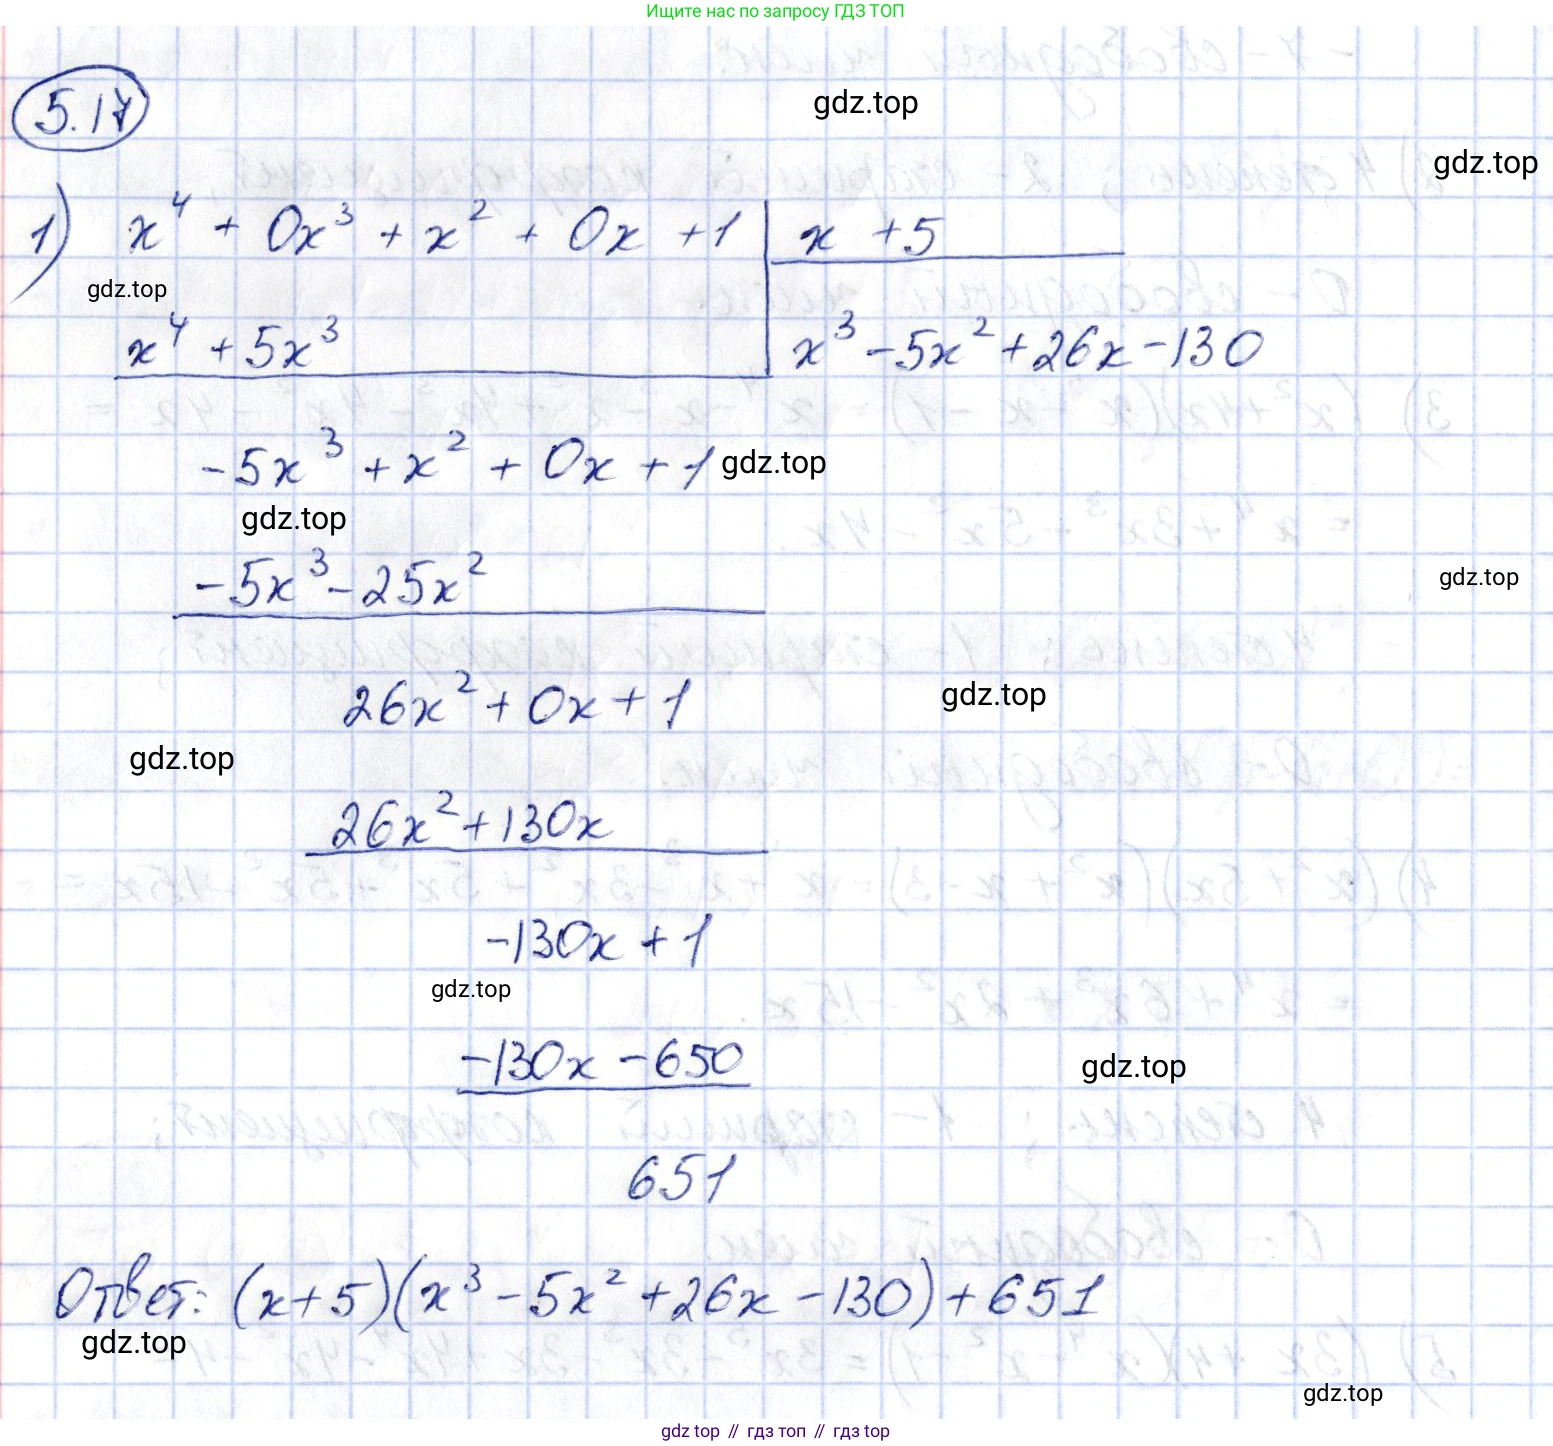 Ищите нас по запросу ГДЗ ТОП
5.17
gdz.top
gdz.top
1) x⁴ + 0x³ + x² + 0x + 1 | x + 5
gdz.top
x⁴ + 5x³ | x³ - 5x² + 26x - 130
-5x³ + x² + 0x + 1
gdz.top
gdz.top
-5x³ - 25x²
gdz.top
26x² + 0x + 1
gdz.top
gdz.top
26x² + 130x
-130x + 1
gdz.top
-130x - 650
gdz.top
651
Ответ: (x+5)(x³ - 5x² + 26x - 130) + 651
gdz.top
gdz.top
gdz top // гдз топ // гдз top